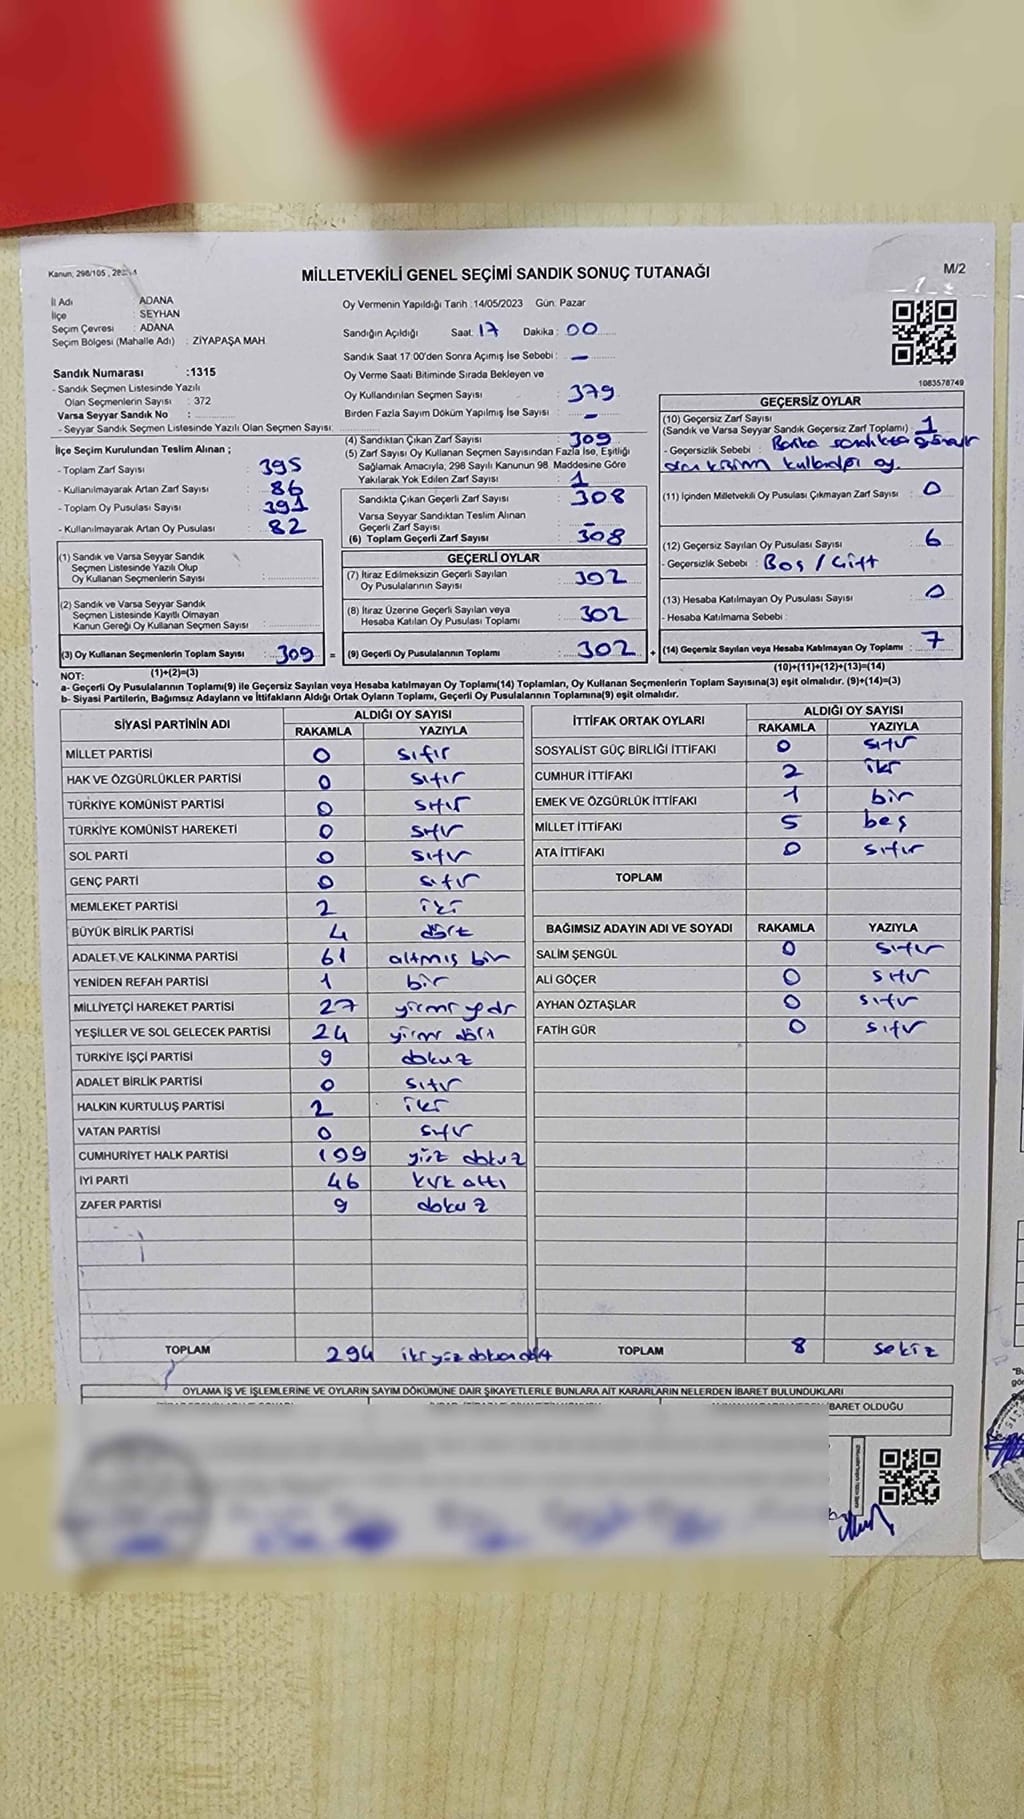 Kanun, 298/105
MİLLETVEKİLİ GENEL SEÇİMİ SANDIK SONUÇ TUTANAĞI
M/2
İl Adı ADANA
İlçe : SEYHAN
Seçim Çevresi : ADANA
Seçim Bölgesi (Mahalle Adı) : ZİYAPAŞA MAH.
Sandık Numarası :1315
- Sandık Seçmen Listesinde Yazılı
Olan Seçmenlerin Sayısı : 372
Varsa Seyyar Sandık No :
- Seyyar Sandık Seçmen Listesinde Yazılı Olan Seçmen Sayısı:
İlçe Seçim Kurulundan Teslim Alınan ;
- Toplam Zarf Sayısı 395
- Kullanılmayarak Artan Zarf Sayısı 86
- Toplam Oy Pusulası Sayısı 391
- Kullanılmayarak Artan Oy Pusulası 82
(1) Sandık ve Varsa Seyyar Sandık
Seçmen Listesinde Yazılı Olup
Oy Kullanan Seçmenlerin Sayısı :
(2) Sandık ve Varsa Seyyar Sandık
Seçmen Listesinde Kayıtlı Olmayan
Kanun Gereği Oy Kullanan Seçmen Sayısı :
(3) Oy Kullanan Seçmenlerin Toplam Sayısı : 309 =
(1)+(2)=(3)
Oy Vermenin Yapıldığı Tarih :14/05/2023 Gün: Pazar
Sandığın Açıldığı Saat: 17 Dakika : 00
Sandık Saat 17:00'den Sonra Açımış İse Sebebi : -
Oy Verme Saati Bitiminde Sırada Bekleyen ve
Oy Kullandırılan Seçmen Sayısı 379
Birden Fazla Sayım Döküm Yapılmış İse Sayısı -
(4) Sandıktan Çıkan Zarf Sayısı : 309
(5) Zarf Sayısı Oy Kullanan Seçmen Sayısından Fazla İse, Eşitliği
Sağlamak Amacıyla, 298 Sayılı Kanunun 98. Maddesine Göre
Yakılarak Yok Edilen Zarf Sayısı : 1
Sandıkta Çıkan Geçerli Zarf Sayısı : 308
Varsa Seyyar Sandıktan Teslim Alınan
Geçerli Zarf Sayısı : -
(6) Toplam Geçerli Zarf Sayısı : 308
GEÇERLİ OYLAR
(7) İtiraz Edilmeksizin Geçerli Sayılan
Oy Pusulalarının Sayısı : 302
(8) İtiraz Üzerine Geçerli Sayılan veya
Hesaba Katılan Oy Pusulası Toplamı : 302
(9) Geçerli Oy Pusulalarının Toplamı : 302 +
1083578749
GEÇERSİZ OYLAR
(10) Geçersiz Zarf Sayısı
(Sandık ve Varsa Seyyar Sandık Geçersiz Zarf Toplamı) : 1
- Geçersizlik Sebebi :
(11) İçinden Milletvekili Oy Pusulası Çıkmayan Zarf Sayısı : 0
(12) Geçersiz Sayılan Oy Pusulası Sayısı : 6
- Geçersizlik Sebebi : Boş / Çift
(13) Hesaba Katılmayan Oy Pusulası Sayısı : 0
- Hesaba Katılmama Sebebi :
(14) Geçersiz Sayılan veya Hesaba Katılmayan Oy Toplamı : 7
(10)+(11)+(12)+(13)=(14)
NOT:
a- Geçerli Oy Pusulalarının Toplamı(9) ile Geçersiz Sayılan veya Hesaba katılmayan Oy Toplamı(14) Toplamları, Oy Kullanan Seçmenlerin Toplam Sayısına(3) eşit olmalıdır. (9)+(14)=(3)
b- Siyasi Partilerin, Bağımsız Adayların ve İttifakların Aldığı Ortak Oyların Toplamı, Geçerli Oy Pusulalarının Toplamına(9) eşit olmalıdır.
SİYASİ PARTİNİN ADI ALDIĞI OY SAYISI
RAKAMLA YAZIYLA
MİLLET PARTİSİ 0 sıfır
HAK VE ÖZGÜRLÜKLER PARTİSİ 0 sıfır
TÜRKİYE KOMÜNİST PARTİSİ 0 sıfır
TÜRKİYE KOMÜNİST HAREKETİ 0 sıfır
SOL PARTİ 0 sıfır
GENÇ PARTİ 0 sıfır
MEMLEKET PARTİSİ 2 iki
BÜYÜK BİRLİK PARTİSİ 4 dört
ADALET VE KALKINMA PARTİSİ 61 altmış bir
YENİDEN REFAH PARTİSİ 1 bir
MİLLİYETÇİ HAREKET PARTİSİ 27 yirmi yedi
YEŞİLLER VE SOL GELECEK PARTİSİ 24 yirmi dört
TÜRKİYE İŞÇİ PARTİSİ 9 dokuz
ADALET BİRLİK PARTİSİ 0 sıfır
HALKIN KURTULUŞ PARTİSİ 2 iki
VATAN PARTİSİ 0 sıfır
CUMHURİYET HALK PARTİSİ 109 yüz dokuz
İYİ PARTİ 46 kırk altı
ZAFER PARTİSİ 9 dokuz
TOPLAM 294 iki yüz doksan dört
İTTİFAK ORTAK OYLARI ALDIĞI OY SAYISI
RAKAMLA YAZIYLA
SOSYALİST GÜÇ BİRLİĞİ İTTİFAKI 0 sıfır
CUMHUR İTTİFAKI 2 iki
EMEK VE ÖZGÜRLÜK İTTİFAKI 1 bir
MİLLET İTTİFAKI 5 beş
ATA İTTİFAKI 0 sıfır
TOPLAM
BAĞIMSIZ ADAYIN ADI VE SOYADI RAKAMLA YAZIYLA
SALİM ŞENGÜL 0 sıfır
ALİ GÖÇER 0 sıfır
AYHAN ÖZTAŞLAR 0 sıfır
FATİH GÜR 0 sıfır
TOPLAM 8 sekiz
OYLAMA İŞ VE İŞLEMLERİNE VE OYLARIN SAYIM DÖKÜMÜNE DAİR ŞİKAYETLERLE BUNLARA AİT KARARLARIN NELERDEN İBARET BULUNDUKLARI
İBARET OLDUĞU